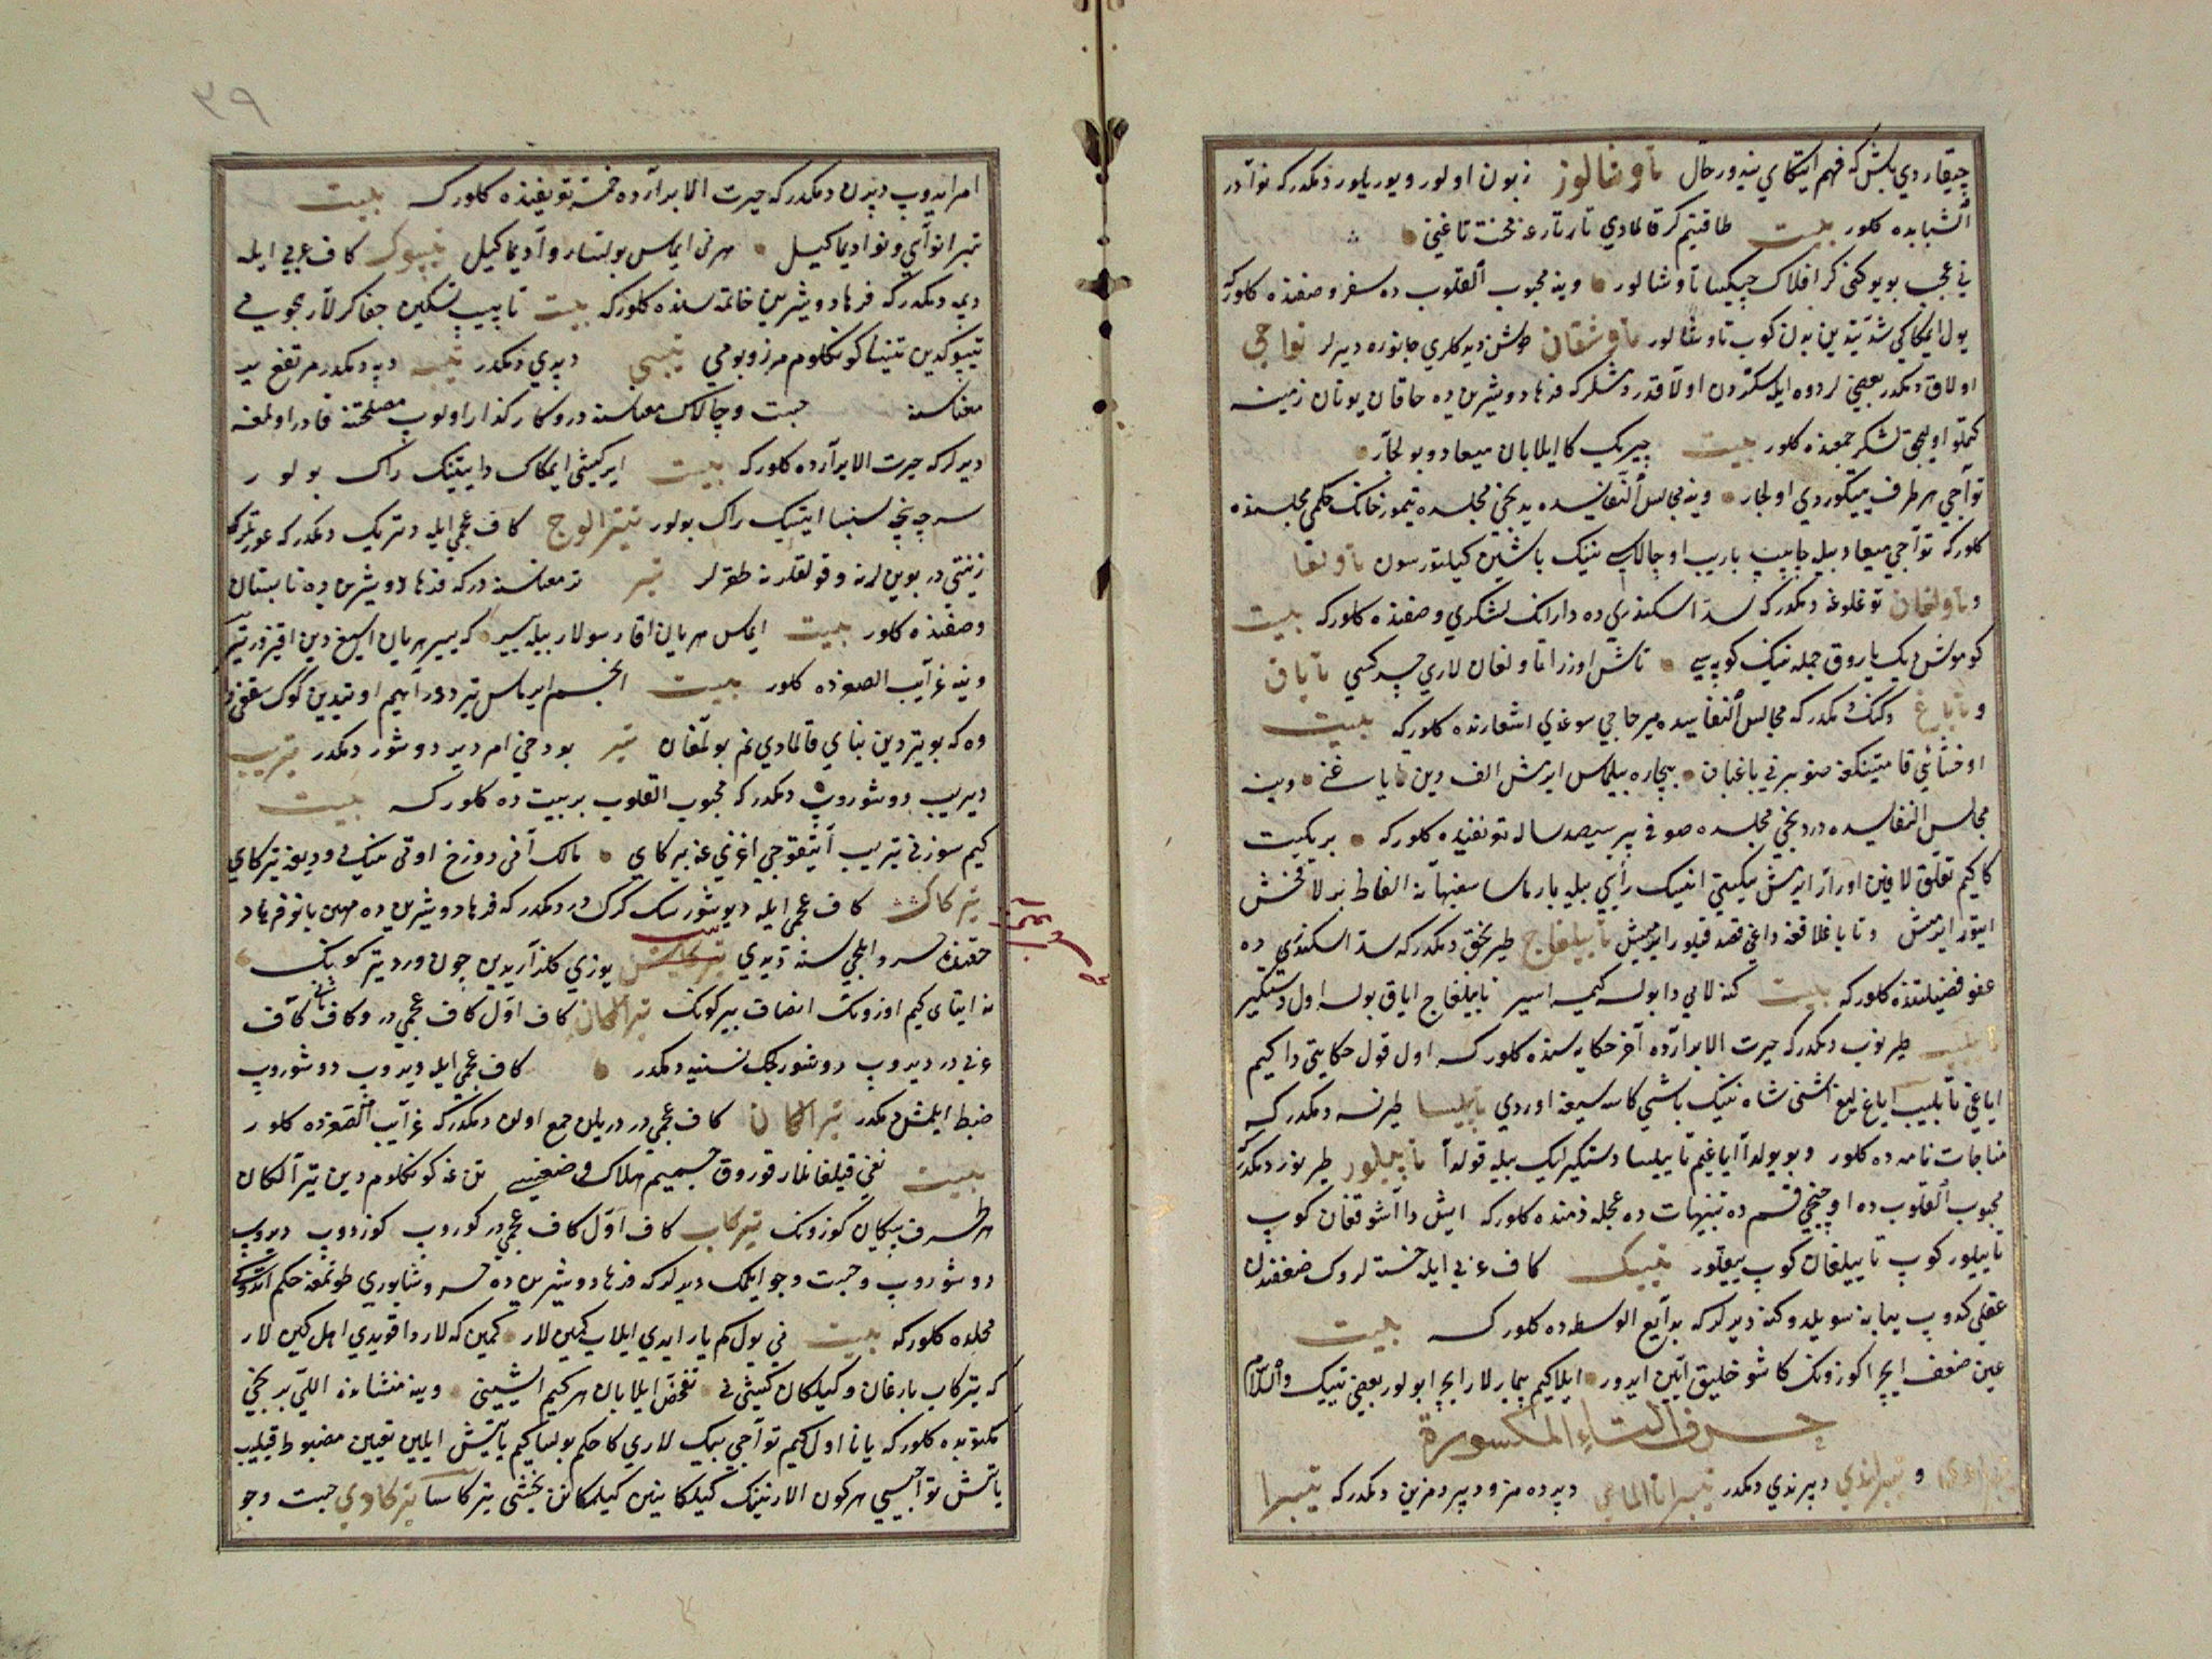 چیقاردی یلش که فهم ایتکای نیدور حال تاوشالور زبون اولور و یوریلور دیمکدر که نوادر
الشبابده کلور بیت طاقتیم کر قالمادی تارتارغه محنت تاغنی
نی عجب بو یوکنی کر افلاک چیکسا تاوشالور وینه محبوب القلوب ده سفر وصفنده کلور که
یول ایمکاکی شدتیدین بدن کوب تاوشالور تاوشقان طوشن دیدکلری جانوره دیرلر تواجی
اولاق دیمکدر بعضیلر دوه ایله سکردن اولاقدر دیمشلر که فرهاد و شیرین ده خاقان یونان زمینه
لشکر جمعنده کلور بیت چیریک کا ایلابان میعاد و بولجار
تواجی هر طرف ییتکوردی اولجار وینه مجالس النفائسده یدنجی مجلسده تیمور خاننک حکمی مجلسنده
کلور که تواجی میعاد بیله چاپیب باریب اوچالاسی نینک باشین کیلتورسون تاولغا
و تاولغان توغلوغه دیمکدر که سد اسکندری ده دارانک لشکری وصفنده کلور که بیت
کوموش دیک یاروق جمله نینک کوپه سی تاش اوزرا تاولغان لاری چیرکسی تایاق
و تایاغ دکنک دیمکدر که مجالس النفایسده میر حاجی سوغدی اشعارنده کلور که بیت
اوخشاتی قامتینکغه صنوبرنی باغبان بیچاره بیلماس ایرمیش الف دین تایاغنی وینه
مجالس النفایسده دردنجی مجلسده صوفی پیر سیصد ساله تعریفنده کلور که بر یکیت
کا کیم تعلق لافین اورار ایرمیش یکیتی انینک رایی بیله بارماسا سفیهانه الفاظ بیرلا فحش
ایتور ایرمیش و تایاغلاقغه داغی قصد قیلور ایرمیش تاییلغاج طیرنجق دیمکدر که سد اسکندری ده
عفو فضیلتنده کلور که بیت کنه لایی دا بولسه کیمسه اسیر تاییلغاج ایاق بولسه اول دستکیر
تاییلیب طیرنوب دیمکدر که حیرت الابرارده آخر حکایه سنده کلور که اول قول حکایتی دا کیم
ایاغی تاییلیب ایاغ لیغ آشنی شاه نینک باشی کاسه سیغه اوردی تاییلسا طیرنسه دیمکدر که
مناجات نامه ده کلور و بو یولدا ایاغیم تاییلسا دستکیرلیک بیله قولدا تاییلور طیرنور دیمکدر که
محبوب القلوب ده اوچنجی قسم ده تنبیهات ده عجله ذمنده کلور که ایش دا آشوققان کوب
تاییلور کوب تاییلغان کوب ییقیلور تیبیک کاف عربی ایله خسته لر وک ضعفندن
عقلی کدوب یبابنه سویلدوکنه دیرلر که بدایع الوسط ده کلور که بیت
عین ضعف ایچرا کوزونک کا شوخلیق آیین ایدور ایلا کیم بیمارلار ایچرا بولور بعضی تیبیک والسلام
حرف التاء المکسورة
و تیبراندی دپرندی دیمکدر تیبرانالماغی دپرده مز و دپردمزین دیمکدر که تیبرا
۳۹
امر ایدوب دپرن دیمکدر که حیرت الابرارده خمسه تعریفنده کلور که بیت
تیبرا نوایی و نوا دیماکیل هرنی ایماس بولسه روا دیماکیل تیپوک کاف عربی ایله
دپمه دیمکدر که فرهاد و شیرین خاتمه سنده کلور که بیت تاپیب تسکین جفاکرلار هجومی
تیپوکدین تینسا کونکلوم مرز و بومی تیپتی دپدی دیمکدر تیپه دپه دیمکدر مرتفع یر
معناسنه چست و چالاک معناسنه در و کارکذار اولوب مصلحتنه قادر اولمغه
دیرلر که حیرت الابرارده کلور که بیت ایر کیشی ایمکاک دا تیتیک راک بولور
سرچه نیچه سینسا ایتیک راک بولور تیترالوج کاف عجمی ایله دتریک دیمکدر که عورتلرک
زینتی در بوینلرنه و قولقلرنه طقرلر تیر تر معناسنه در که فرهاد و شیرین ده تابستان
وصفنده کلور بیت ایماس هریان اقار سولار بیله ییر که ییر هریان اسیغ دین اقیزور تیر
وینه غرایب الصغرده کلور بیت انجم ایرماس تیردور آهیم اوتیدین کوک سقفی
وه که بو تیردین بنای قالمادی نم بولمغان تیر بو دخی امردر دیر دوشور دیمکدر تیریب
دیریب دوشوروب دیمکدر که محبوب القلوب بر بیت ده کلور که بیت
کیم سوزنی تیریب آیتقوجی اغزیغه بیرکای مالک آنی دوزخ اوتی نینک فرودیغه تیرکای
تیرکاک کاف عجمی ایله دیوشورسک کرک در دیمکدر که فرهاد و شیرین ده مهین بانو فرهاد
حقنده خسرو ایلچی سنه دیدی یوزی کلزاریدین چون ورد تیرکونک
نه ایتای کیم اوزونک انصاف بیرکونک تیرالکان کاف اول کاف عجمی در و کاف ثانی کاف
عربی در دیروب دوشورجک نسنیه دیمکدر کاف عجمی ایله دیروب دوشوروب
ضبط ایلمش دیمکدر تیرالکان کاف عجمی در دریلن جمع اولن دیمکدر که غرایب الصغرده کلور
بیت نفی قیلغانلار قوروق جسمیم هلاک فی ضعفی تن غه کونکلوم دین تیرالکان
هر طرف پیکان کوزونک تیرکاب کاف اول کاف عجمی در کوروب کوزدوب دیروب
دوشوروب و جست وجو ایلمک دیرلر که فرهاد و شیرین ده خسرو شاپوری طوتمغه حکم اتدوکی
محلده کلور که بیت نی یول کم یار ایدی ایلاب کمین لار کمین که لاردا قویدی اهل کین لار
که تیرکاب بارغان و کیلکان کیشی نی تفحص ایلابان هر کیم ایشینی وینه منشأنده اللی برنجی
مکتوبده کلور که یانا اول کیم تواجی بیک لاری کا حکم بولسا کیم یاتیش ایلین تعیین مضبوط قیلیب
یاتیش تواجیسی هر کون الارنینک کیلکانین کیلمکانین یخشی تیرکاسا تیرکادی جست وجو